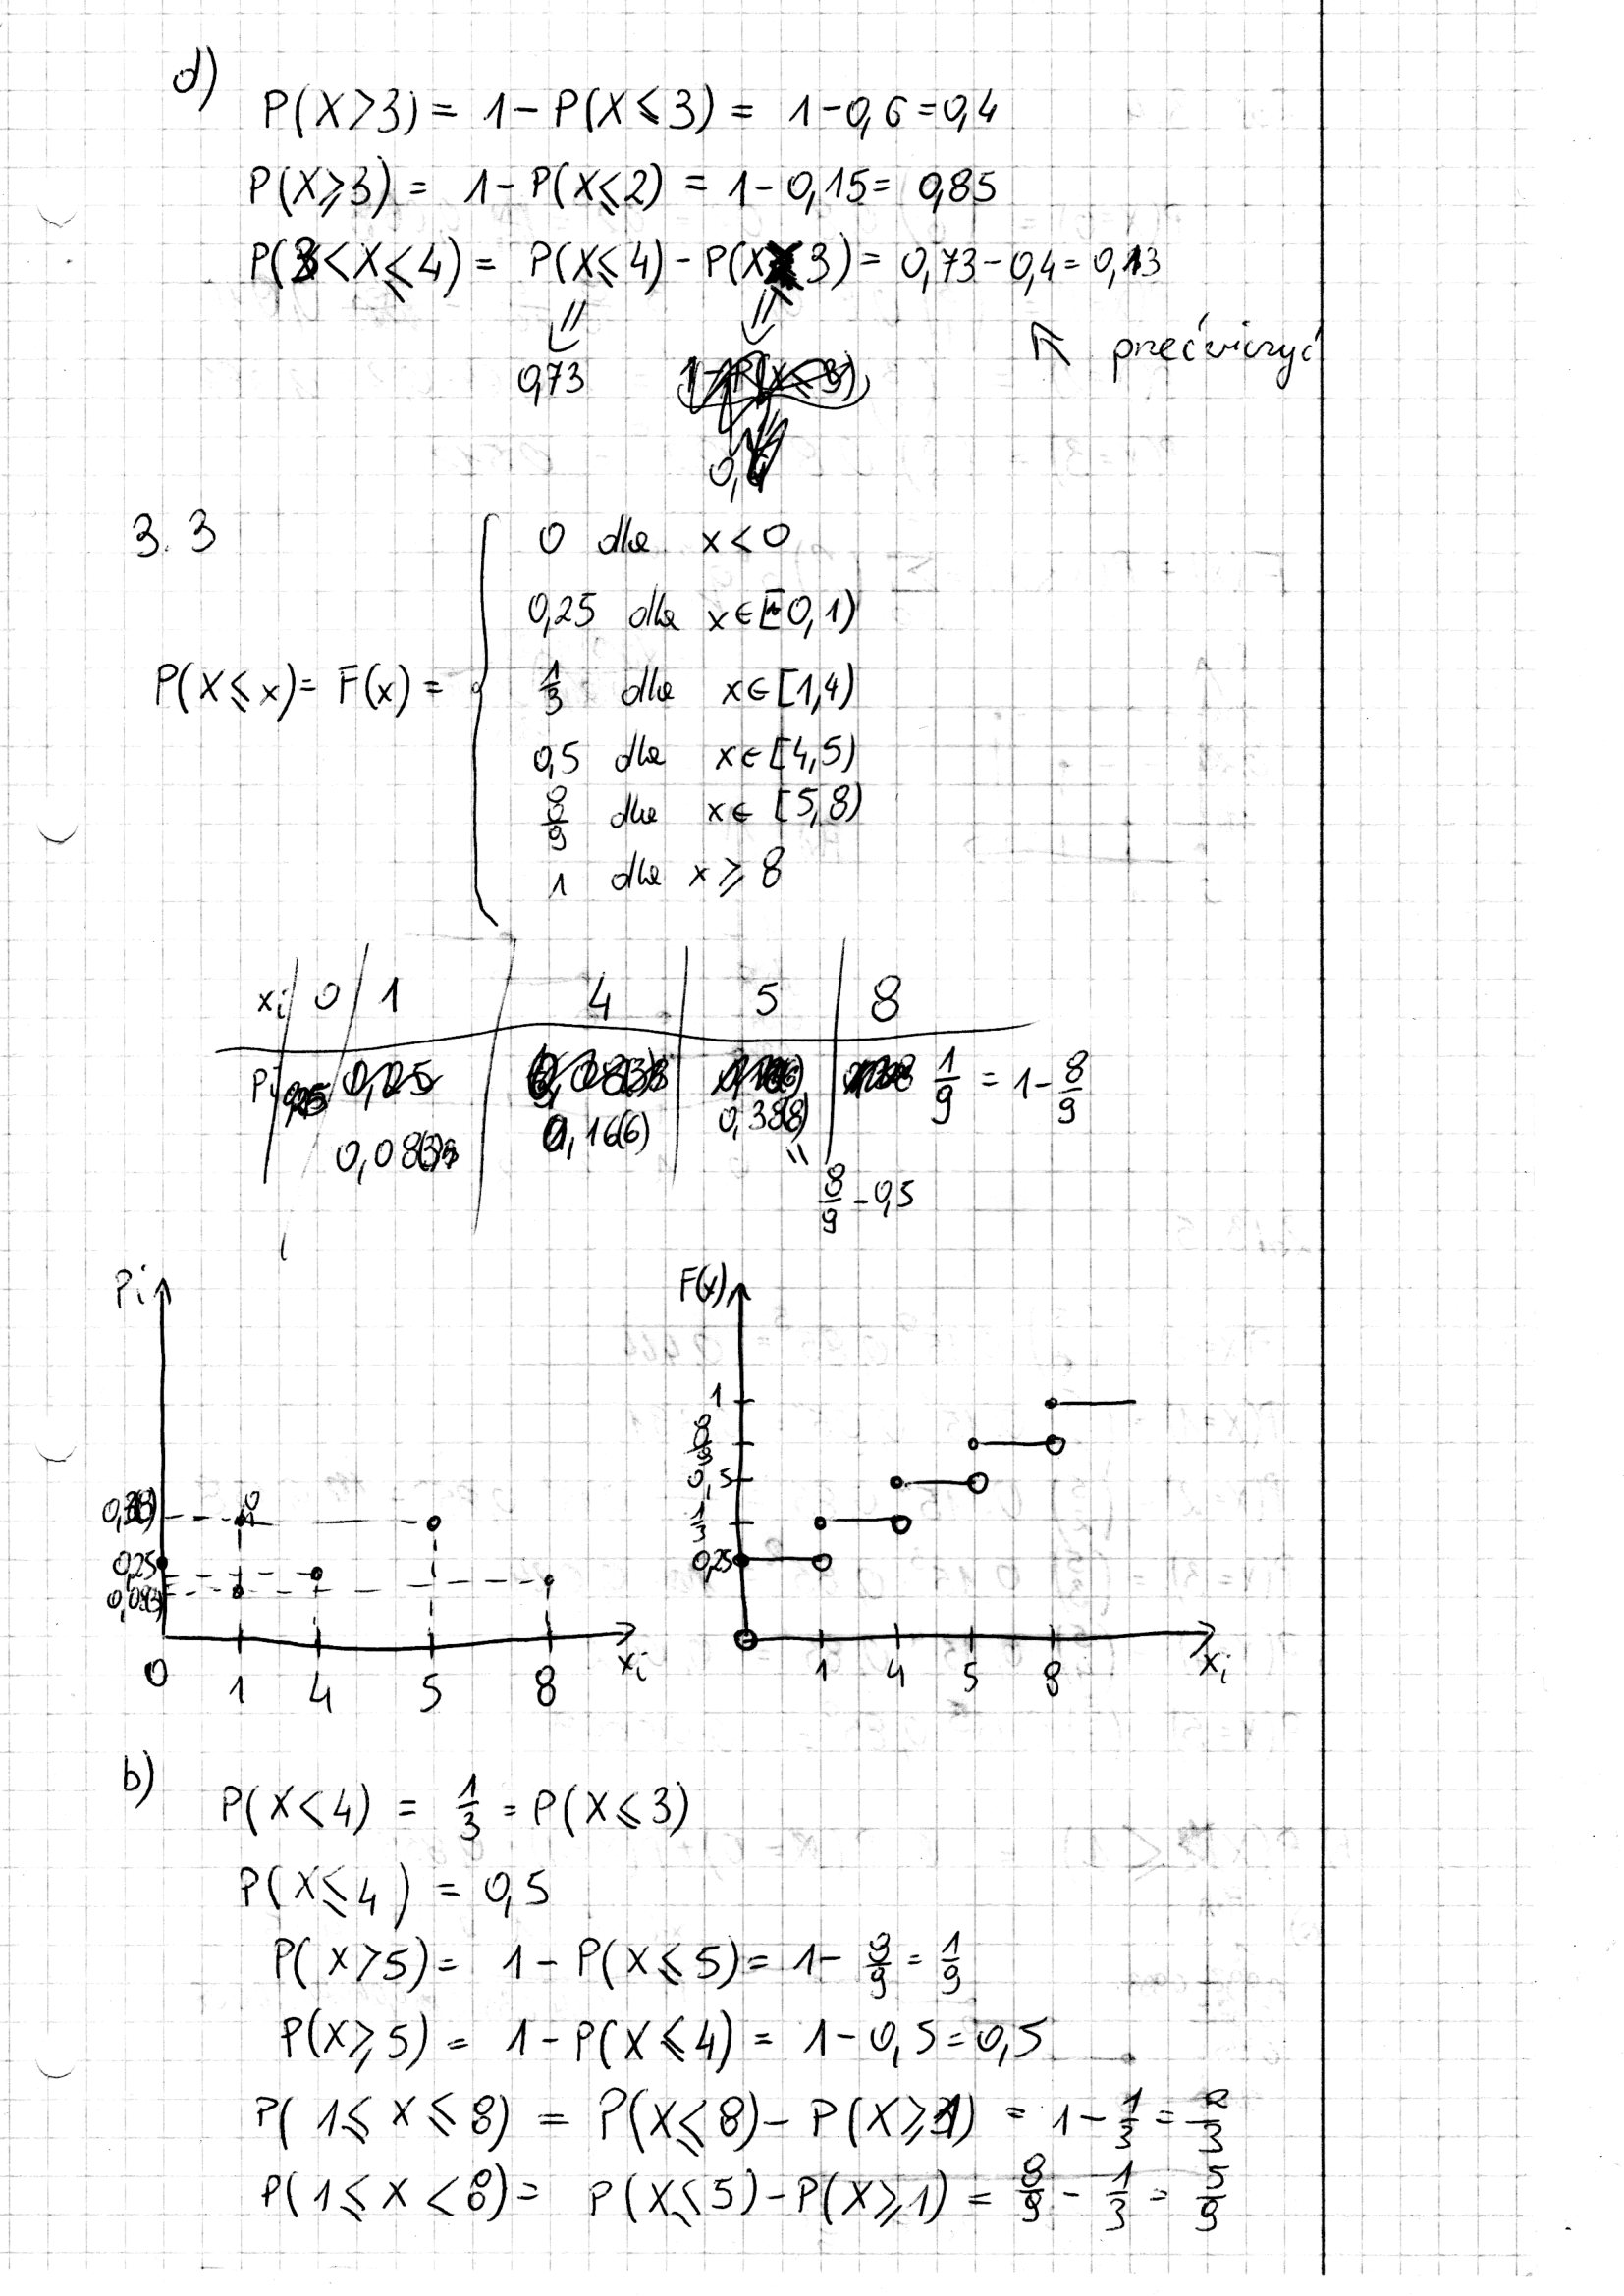 d)
P(X>3) = 1 - P(X⩽3) = 1-0,6=0,4
P(X⩾3) = 1 - P(X⩽2) = 1-0,15= 0,85
P(3<X⩽4) = P(X⩽4) - P(X 3) = 0,73-0,4= 0,13
⇓ ⇓
0,73
↖ przećwiczyć
0,
3.3
P(X⩽x)= F(x) =
0 dla x<0
0,25 dla x∈[0,1)
1/3 dla x∈[1,4)
0,5 dla x∈[4,5)
8/9 dla x∈[5,8)
1 dla x⩾8
xi 0 1 4 5 8
Pi 0,25 1/9 = 1-8/9
0,08(3) 0,16(6) 0,38(8)
"
8/9 - 0,5
Pi F(x)
1
5
0,25 0,25
0 1 4 5 8 xi 1 4 5 8 xi
b)
P(X<4) = 1/3 = P(X⩽3)
P(X⩽4) = 0,5
P(X>5) = 1 - P(X⩽5) = 1 - 8/9 = 1/9
P(X⩾5) = 1 - P(X⩽4) = 1-0,5=0,5
P(1⩽X⩽8) = P(X⩽8) - P(X⩾1) = 1 - 1/3 = 2/3
P(1⩽X<8) = P(X⩽5) - P(X⩾1) = 8/9 - 1/3 = 5/9